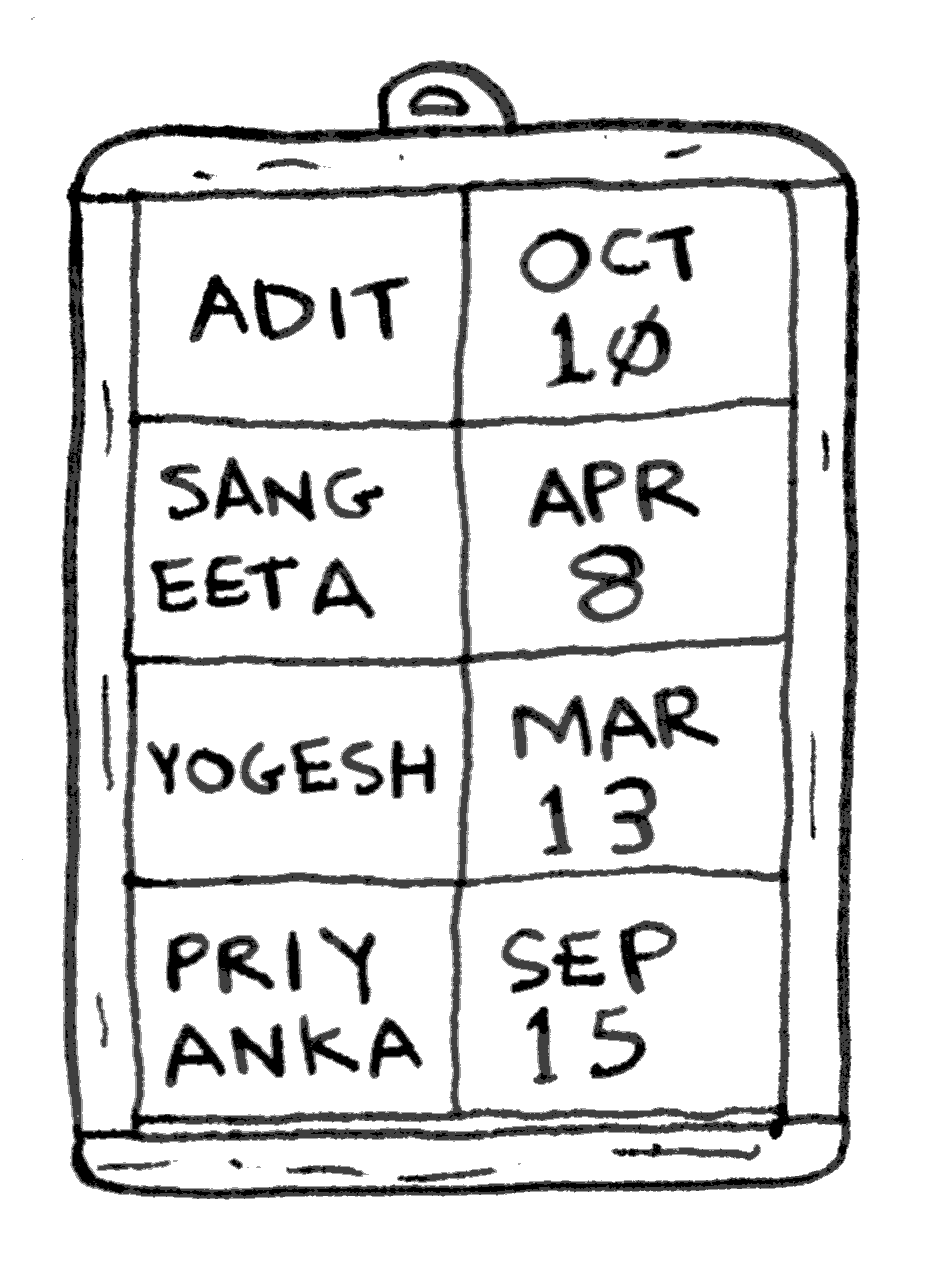 ADIT
OCT
10
SANG
EETA
APR
8
YOGESH
MAR
13
PRIY
ANKA
SEP
15